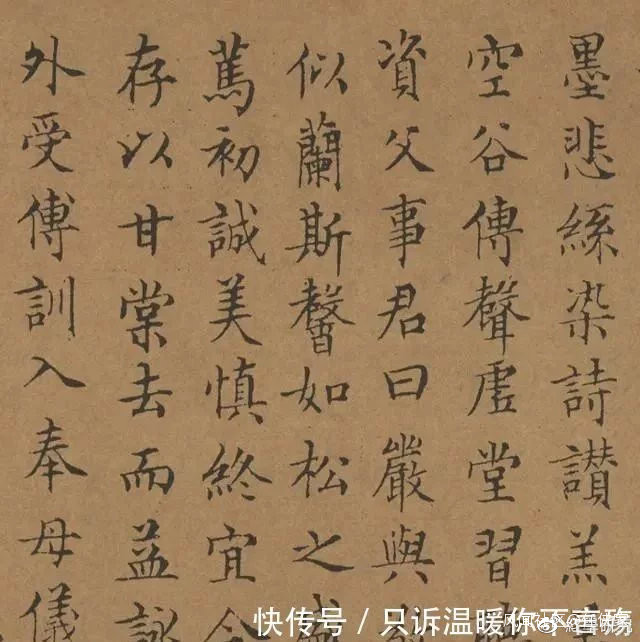 墨悲絲染詩讃羔
空谷傳聲虛堂習
資父事君曰嚴與
似蘭斯馨如松之盛
篤初誠美慎終宜令
存以甘棠去而益詠
外受傅訓入奉母儀
快传号 / 只诉温暖你不言殇